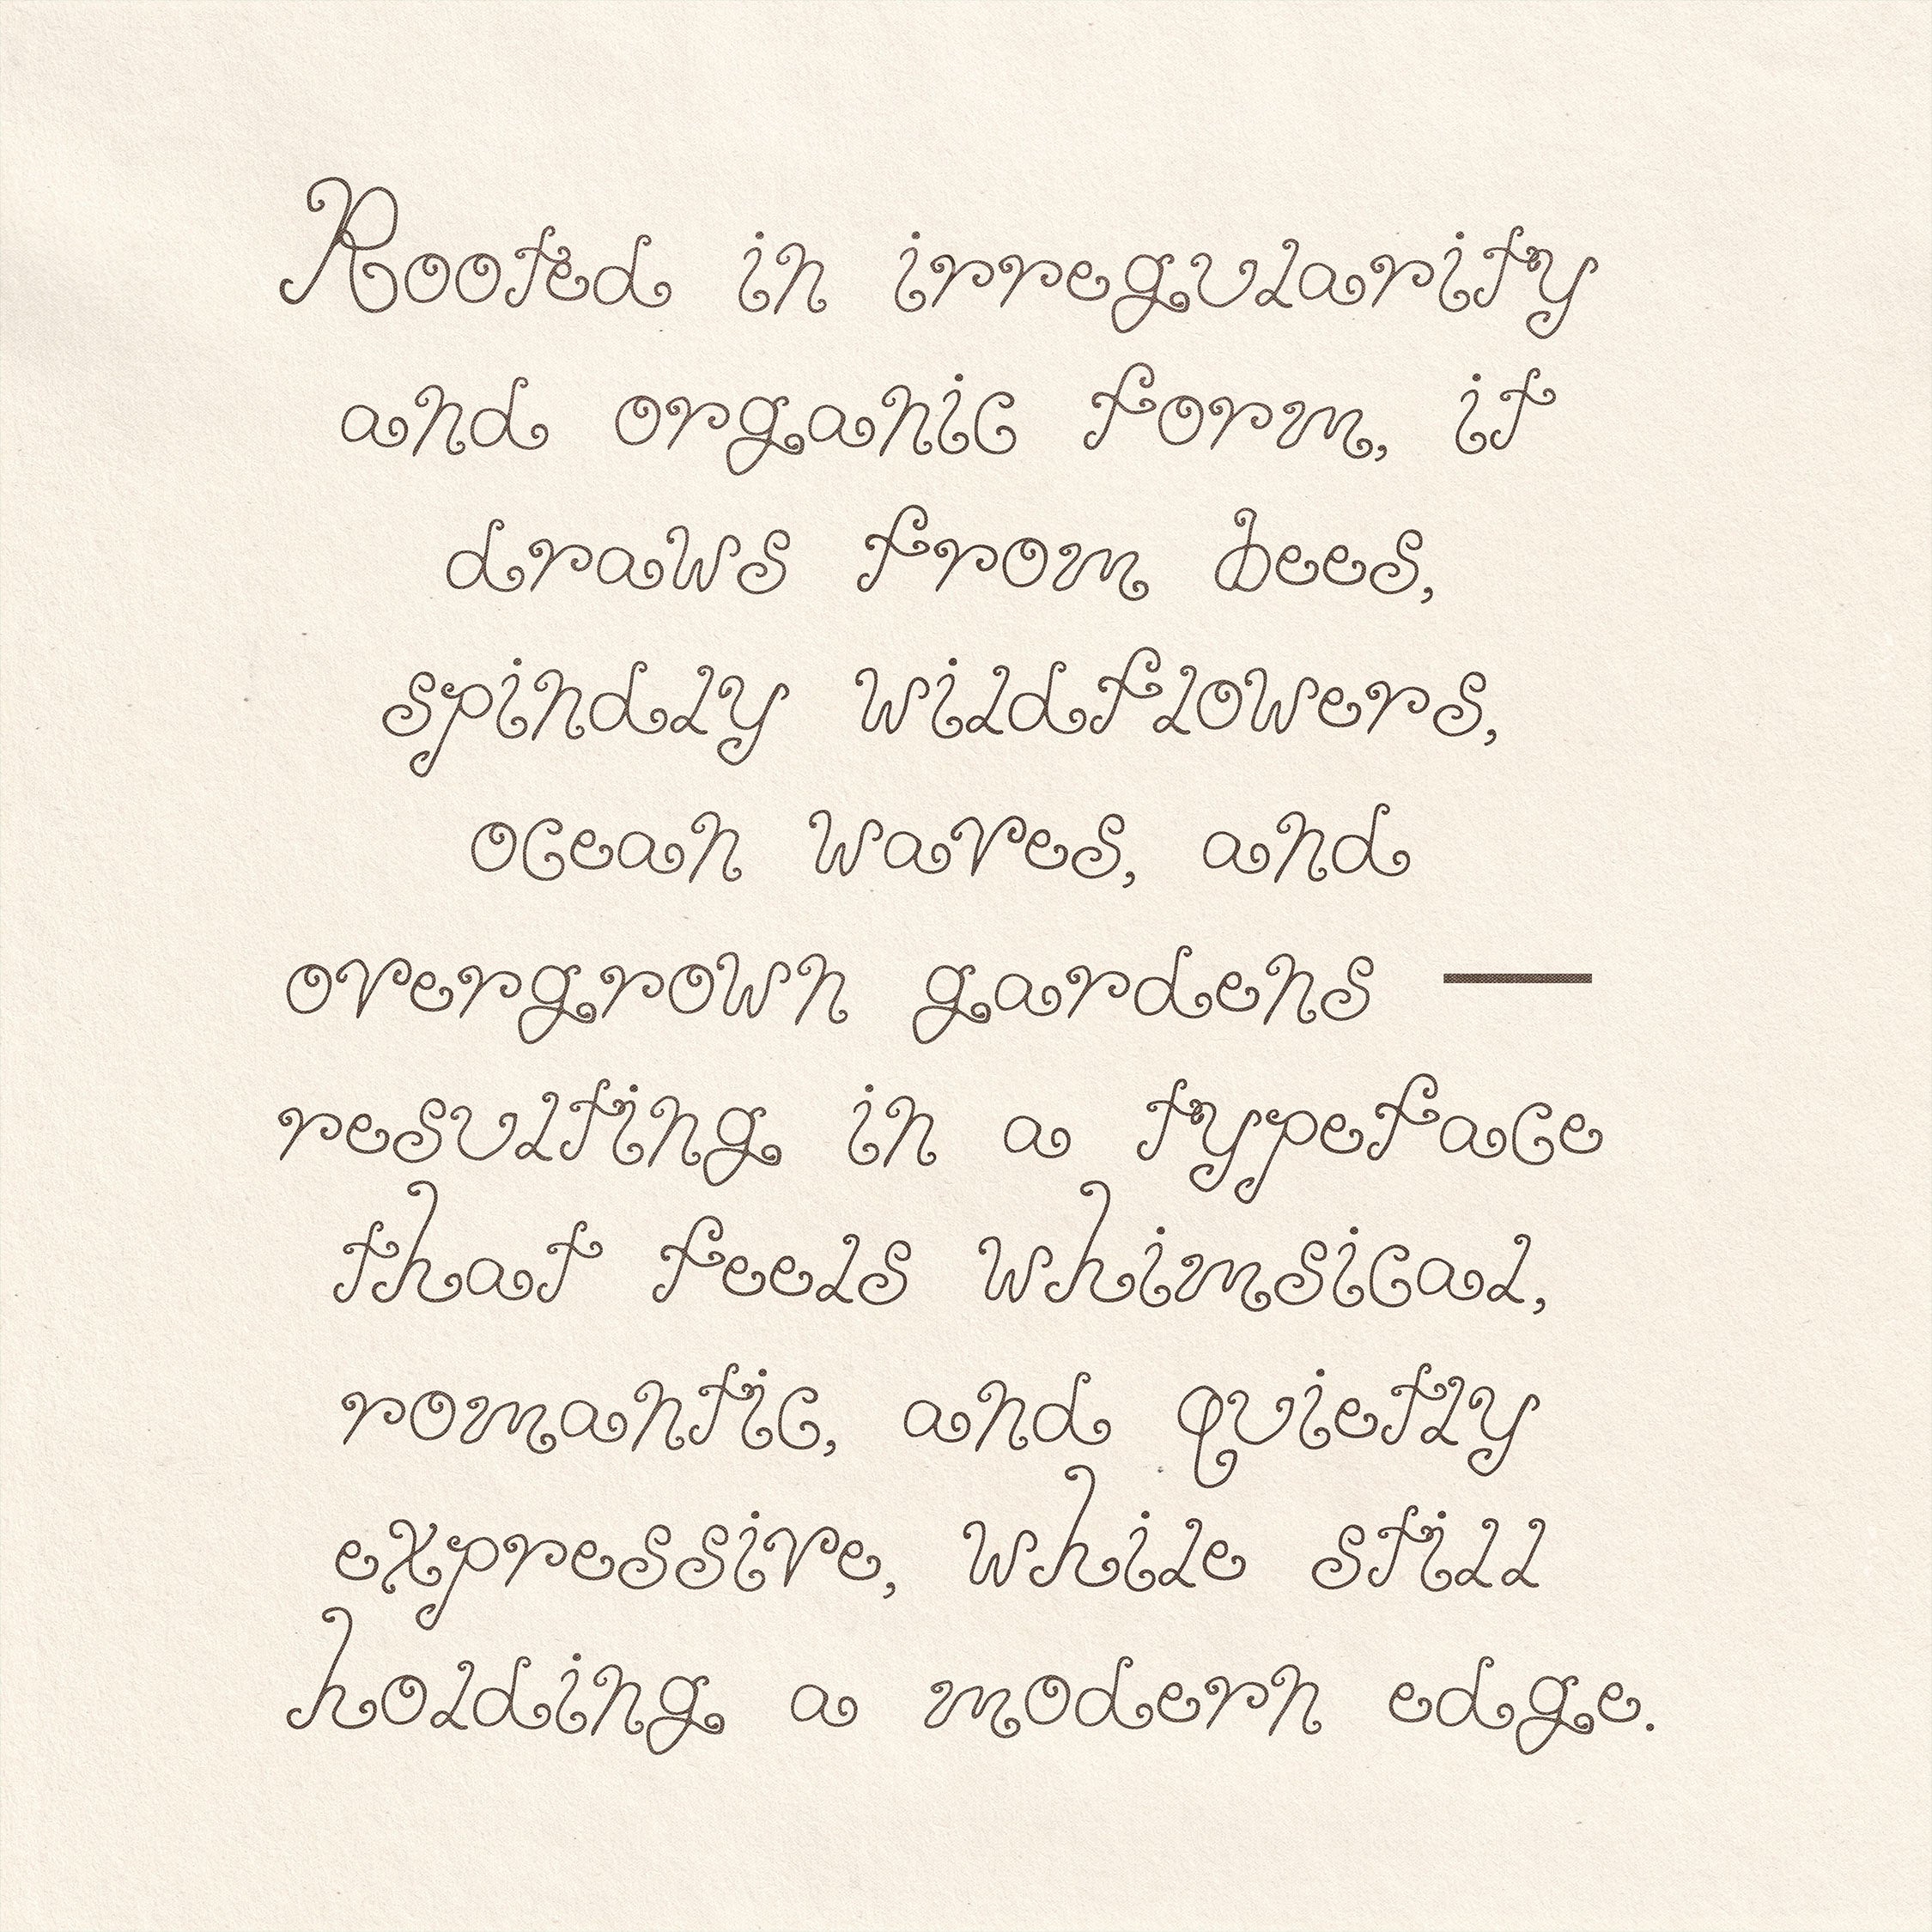 Rooted in irregularity
and organic form, it
draws from bees,
spindly wildflowers,
ocean waves, and
overgrown gardens —
resulting in a typeface
that feels whimsical,
romantic, and quietly
expressive, while still
holding a modern edge.